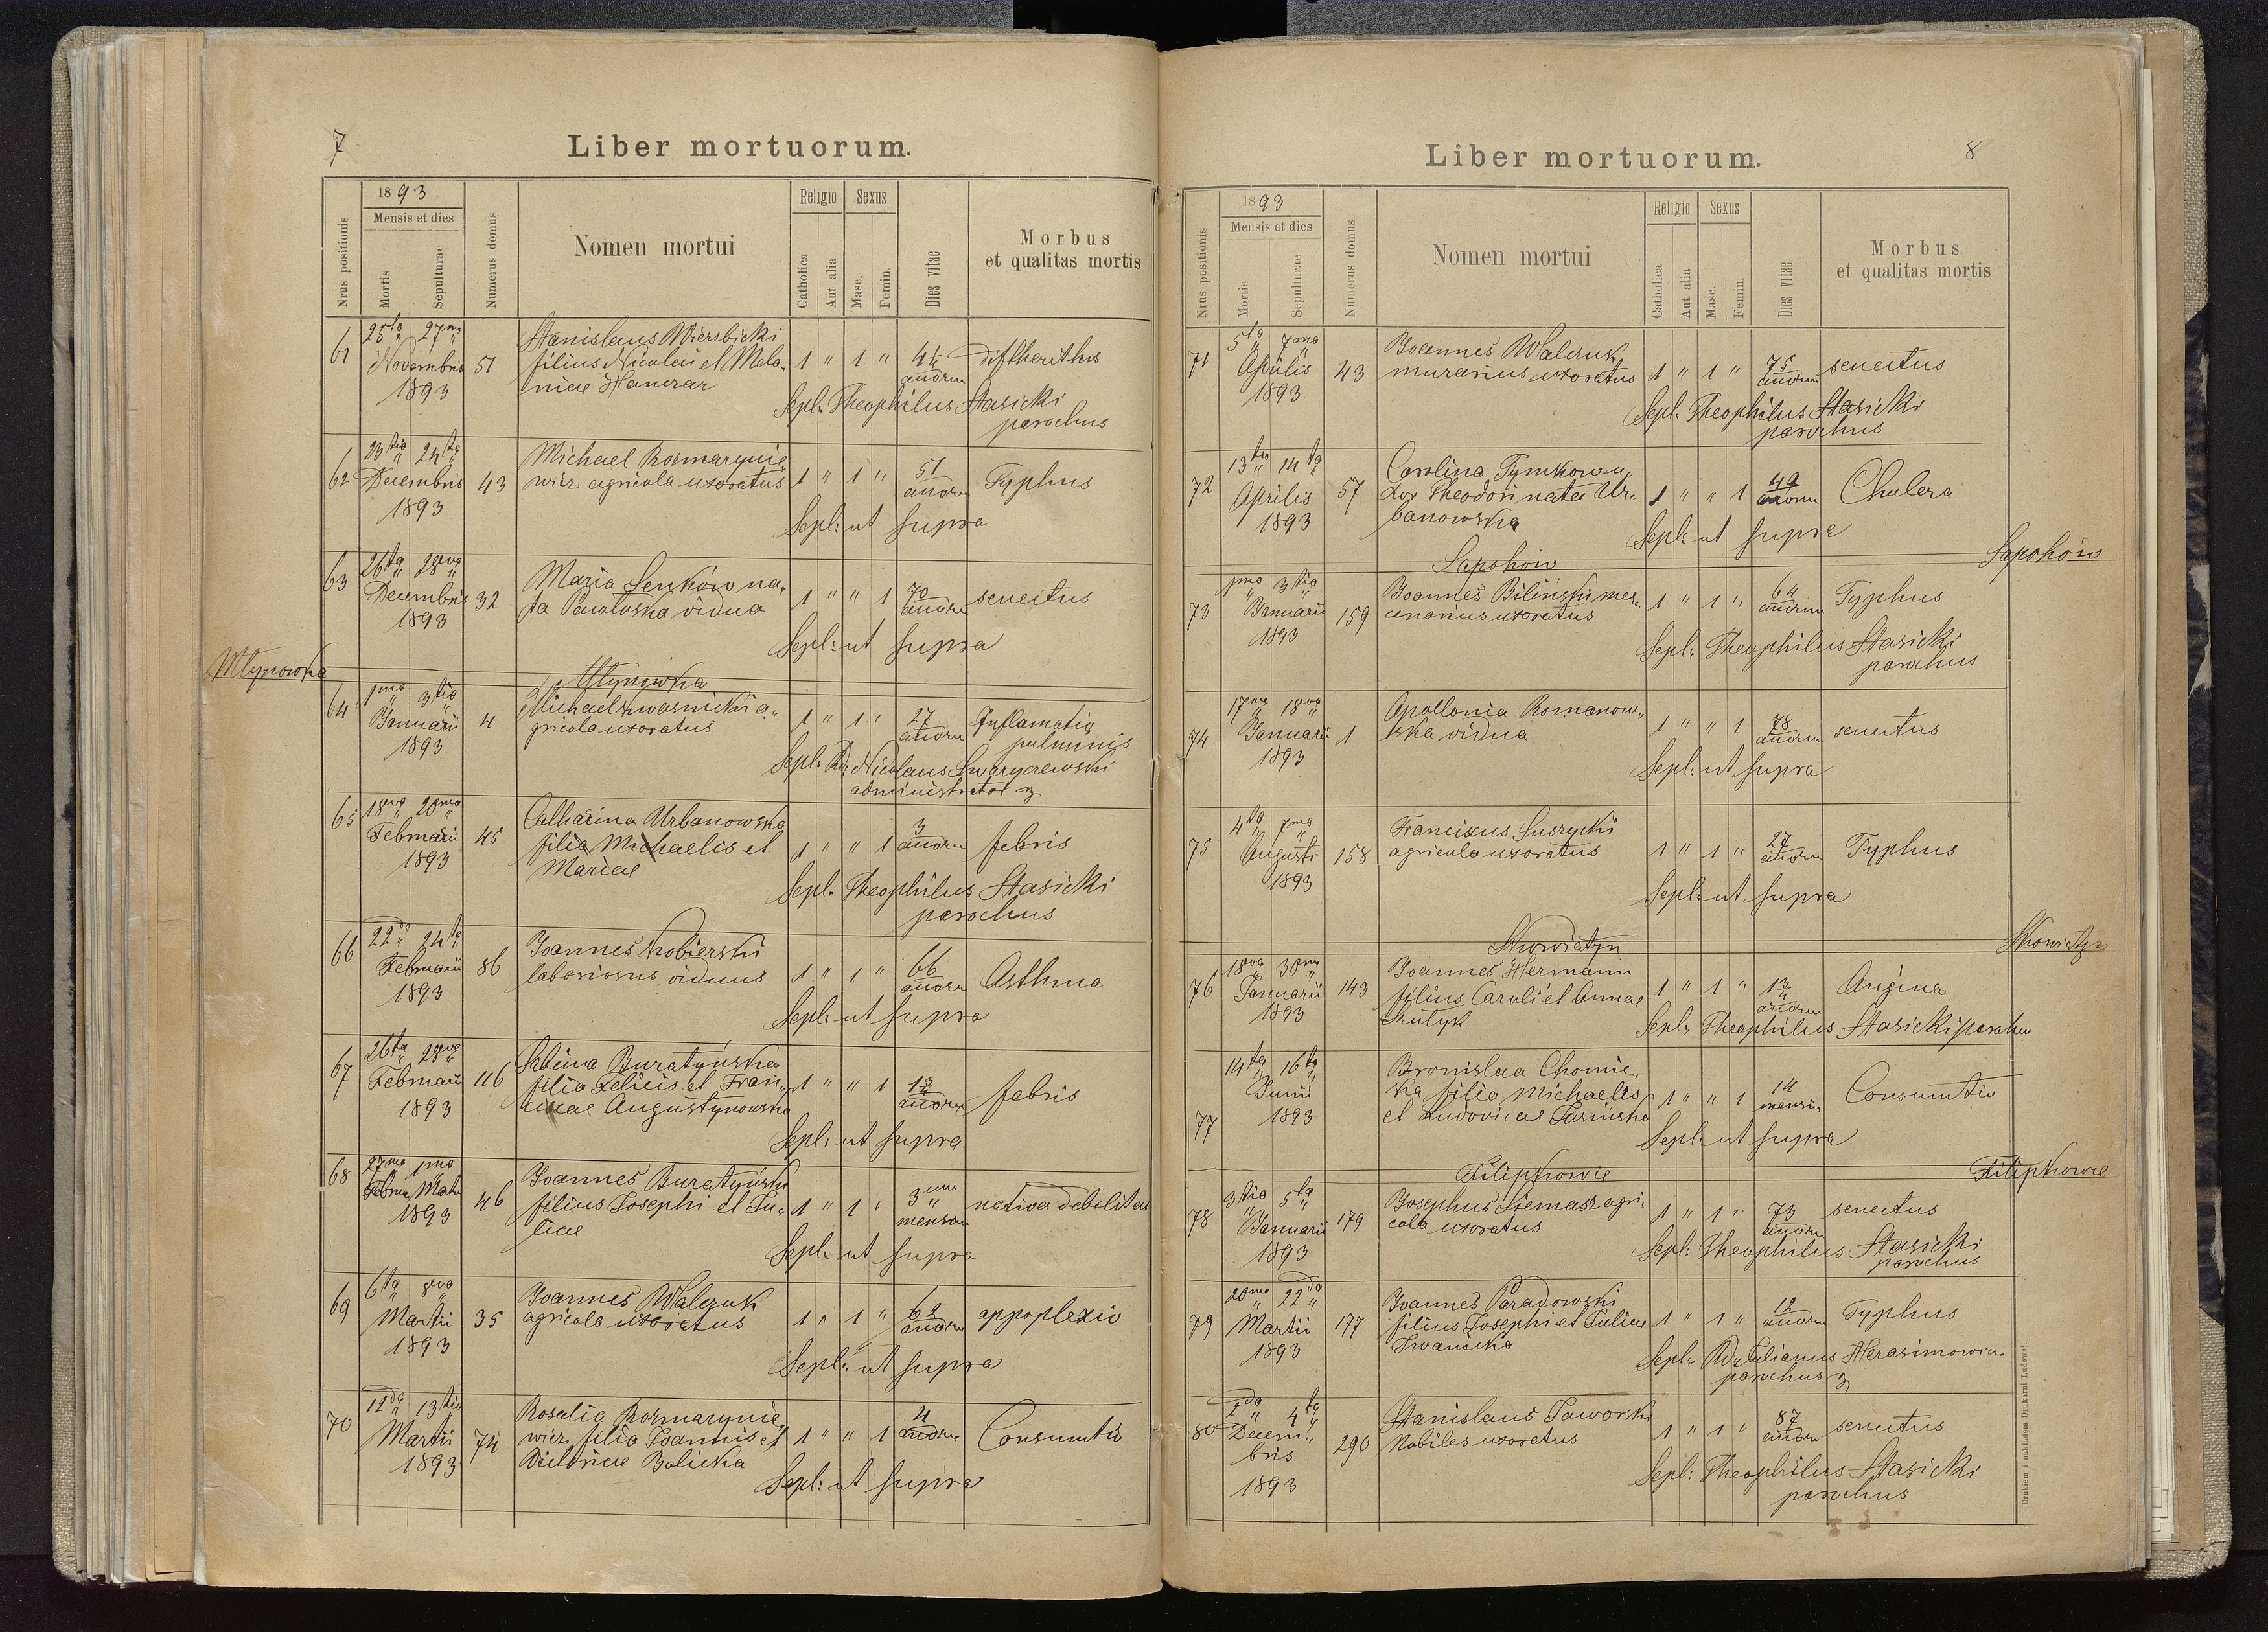 7
Liber mortuorum.
1893
Mensis et dies
Nrus positionis
Mortis
Sepulturae
Numerus domus
Nomen mortui
Religio
Catholica
Aut alia
Sexus
Masc.
Femin.
Dies vitae
Morbus
et qualitas mortis
25ta 27ma
61 Novembris 1893 51
Stanislaus Wierzbicki
filius Nicolai et Mela-
niae Hanczar
1 " 1 " annorum
Sepl. Theophilus Stasicki
parochus
23tia 24ta
62 Decembris 1893 43
Michael Rozmarynie
wicz agricola uxoratus
1 " 1 " 51 annorum Typhus
Sepl: ut supra
26ta 28va
63 Decembris 1893 32
Maria Senków na-
ta vidua
1 " " 1 70 annorum senectus
Sepl: ut supra
Młynowka
Młynowka
1ma 3tia
64 Januarii 1893 4
Michael Kwasnicki a-
gricola uxoratus
1 " 1 " 27 annorum Inflamatio
pulmunis
Sepl. Rdus Nicolaus
administrator
18va 20ma
65 Februarii 1893 45
Catharina Urbanowska
filia Michaelis et
Mariae
1 " " 1 3 annorum febris
Sepl. Theophilus Stasicki
parochus
22da 24ta
66 Februarii 1893 86
Joannes Kobierski
laboriosus viduus
1 " 1 " 66 annorum Asthma
Sepl: ut supra
26ta 28va
67 Februarii 1893 116
Sabina Buratyńska
filia Felicis et Fran-
ciscae Augustynowska
1 " " 1 annorum febris
Sepl: ut supra
27ma 1ma
68 Februar Martii 1893 46
Joannes Buratyński
filius Josephi et Ju-
liae
1 " 1 " 3 mensium nativa debilitas
Sepl: ut supra
6ta 8va
69 Martii 1893 35
Joannes Walczuk
agricola uxoratus
1 " 1 " 62 annorum appoplexio
Sepl: ut supra
12da 13tia
70 Martii 1893 74
Rosalia Rozmarynie
wicz filia Joannis et
Victoriae Balicka
1 " " 1 4 annorum Consumtio
Sepl: ut supra
8
Liber mortuorum.
1893
Mensis et dies
Nrus positionis
Mortis
Sepulturae
Numerus domus
Nomen mortui
Religio
Catholica
Aut alia
Sexus
Masc.
Femin.
Dies vitae
Morbus
et qualitas mortis
5ta 7ma
71 Aprilis 1893 43
Joannes Walczuk
murarius uxoratus
1 " 1 " 75 annorum senectus
Sepl. Theophilus Stasicki
parochus
13tia 14ta
72 Aprilis 1893 57
Carolina Tymkow u-
xor Theodori nata Ur-
banowska
1 " " 1 49 annorum Chulera
Sepl: ut supra
Sapohów
Sapohów
1ma 3tia
73 Januarii 1893 159
Joannes Biliński mer-
cenarius uxoratus
1 " 1 " 64 annorum Typhus
Sepl. Theophilus Stasicki
parochus
17ma 18va
74 Januarii 1893 1
Apollonia Romanow-
ska vidua
1 " " 1 78 annorum senectus
Sepl: ut supra
4ta 7ma
75 Augusti 1893 158
Franciscus Suszycki
agricola uxoratus
1 " 1 " 27 annorum Typhus
Sepl: ut supra
Skowiatyn
Skowiatyn
18va 30ma
76 Januarii 1893 143
Joannes Hermann
filius Caroli et Annae
1 " 1 " annorum Angina
Sepl. Theophilus Stasicki parochus
14ta 16ta
77 Junii 1893
Bronislaa Chomic-
ka filia Michaelis
et Ludovicae Jasińska
1 " " 1 14 mensium Consumtio
Sepl: ut supra
Filipkowce
Filipkowce
3tia 5ta
78 Januarii 1893 179
Josephus Siemasz agri-
cola uxoratus
1 " 1 " 73 annorum senectus
Sepl: Theophilus Stasicki
parochus
20ma 22da
79 Martii 1893 177
Joannes Paradowski
filius Josephi et Juliae
Iwanicka
1 " 1 " 12 annorum Typhus
Sepl. Rdus Julianus Herasimowicz
parochus
2da 4ta
80 Decem-
bris
1893 290
Stanislaus Jaworski
Nobiles uxoratus
1 " 1 " 87 annorum senectus
Sepl: Theophilus Stasicki
parochus
Drukiem i nakładem Drukarni Ludowej.